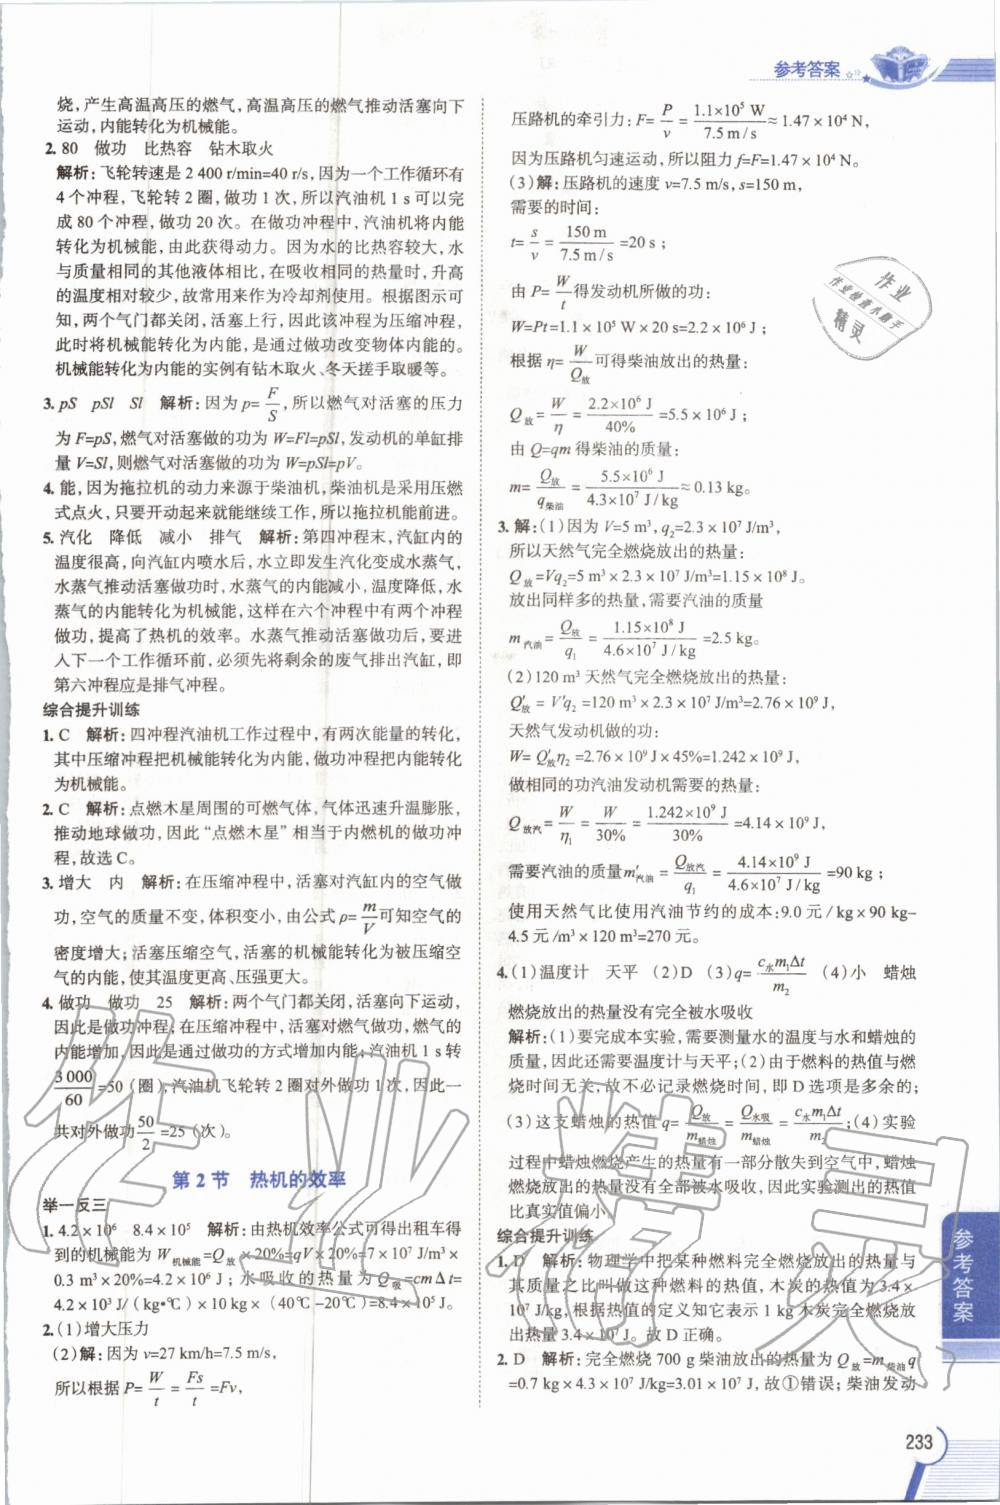 参考答案
烧,产生高温高压的燃气,高温高压的燃气推动活塞向下
运动,内能转化为机械能。
2. 80 做功 比热容 钻木取火
解析:飞轮转速是 2 400 r/min=40 r/s,因为一个工作循环有
4 个冲程,飞轮转 2 圈,做功 1 次,所以汽油机 1 s 可以完
成 80 个冲程,做功 20 次。在做功冲程中,汽油机将内能
转化为机械能,由此获得动力。因为水的比热容较大,水
与质量相同的其他液体相比,在吸收相同的热量时,升高
的温度相对较少,故常用来作为冷却剂使用。根据图示可
知,两个气门都关闭,活塞上行,因此该冲程为压缩冲程,
此时将机械能转化为内能,是通过做功改变物体内能的。
机械能转化为内能的实例有钻木取火、冬天搓手取暖等。
3. pS pSl Sl 解析:因为 p=F/S,所以燃气对活塞的压力
为 F=pS,燃气对活塞做的功为 W=Fl=pSl,发动机的单缸排
量 V=Sl,则燃气对活塞做的功为 W=pSl=pV。
4. 能,因为拖拉机的动力来源于柴油机,柴油机是采用压燃
式点火,只要开动起来就能继续工作,所以拖拉机能前进。
5. 汽化 降低 减小 排气 解析:第四冲程末,汽缸内的
温度很高,向汽缸内喷水后,水立即发生汽化变成水蒸气,
水蒸气推动活塞做功时,水蒸气的内能减小,温度降低,水
蒸气的内能转化为机械能,这样在六个冲程中有两个冲程
做功,提高了热机的效率。水蒸气推动活塞做功后,要进
入下一个工作循环前,必须先将剩余的废气排出汽缸,即
第六冲程应是排气冲程。
综合提升训练
1. C 解析:四冲程汽油机工作过程中,有两次能量的转化,
其中压缩冲程把机械能转化为内能,做功冲程把内能转化
为机械能。
2. C 解析:点燃木星周围的可燃气体,气体迅速升温膨胀,
推动地球做功,因此“点燃木星”相当于内燃机的做功冲
程,故选 C。
3. 增大 内 解析:在压缩冲程中,活塞对汽缸内的空气做
功,空气的质量不变,体积变小,由公式 ρ=m/V可知空气的
密度增大;活塞压缩空气,活塞的机械能转化为被压缩空
气的内能,使其温度更高、压强更大。
4. 做功 做功 25 解析:两个气门都关闭,活塞向下运动,
因此是做功冲程;在压缩冲程中,活塞对燃气做功,燃气的
内能增加,因此是通过做功的方式增加内能;汽油机 1 s 转
3 000/60=50(圈),汽油机飞轮转 2 圈对外做功 1 次,因此一
共对外做功50/2=25(次)。
第 2 节 热机的效率
举一反三
1. 4.2×10⁶ 8.4×10⁵ 解析:由热机效率公式可得出租车得
到的机械能为 W机械能=Q放×20%=qV×20%=7×10⁷ J/m³×
0.3 m³×20%=4.2×10⁶ J;水吸收的热量为 Q吸=cmΔt=
4.2×10³ J/(kg•℃)×10 kg×(40℃-20℃)=8.4×10⁵ J。
2. (1)增大压力
(2)解:因为 v=27 km/h=7.5 m/s,
所以根据 P=W/t=Fs/t=Fv,
压路机的牵引力:F=P/v=1.1×10⁵ W/7.5 m/s≈1.47×10⁴ N,
因为压路机匀速运动,所以阻力 f=F=1.47×10⁴ N。
(3)解:压路机的速度 v=7.5 m/s,s=150 m,
需要的时间:
t=s/v=150 m/7.5 m/s=20 s;
由 P=W/t得发动机所做的功:
W=Pt=1.1×10⁵ W×20 s=2.2×10⁶ J;
根据 η=W/Q放可得柴油放出的热量:
Q放=W/η=2.2×10⁶ J/40%=5.5×10⁶ J;
由 Q=qm 得柴油的质量:
m=Q放/q柴油=5.5×10⁶ J/4.3×10⁷ J/kg≈0.13 kg。
3. 解:(1)因为 V=5 m³,q₂=2.3×10⁷ J/m³,
所以天然气完全燃烧放出的热量:
Q放=Vq₂=5 m³×2.3×10⁷ J/m³=1.15×10⁸ J。
放出同样多的热量,需要汽油的质量
m汽油=Q放/q₁=1.15×10⁸ J/4.6×10⁷ J/kg=2.5 kg。
(2)120 m³ 天然气完全燃烧放出的热量:
Q′放=V′q₂=120 m³×2.3×10⁷ J/m³=2.76×10⁹ J,
天然气发动机做的功:
W=Q′放η₂=2.76×10⁹ J×45%=1.242×10⁹ J,
做相同的功汽油发动机需要的热量:
Q放汽=W/η₁=W/30%=1.242×10⁹ J/30%=4.14×10⁹ J,
需要汽油的质量m′汽油=Q放汽/q₁=4.14×10⁹ J/4.6×10⁷ J/kg=90 kg;
使用天然气比使用汽油节约的成本:9.0 元/kg×90 kg-
4.5 元/m³×120 m³=270 元。
4. (1)温度计 天平 (2)D (3)q=c水m₁Δt/m₂ (4)小 蜡烛
燃烧放出的热量没有完全被水吸收
解析:(1)要完成本实验,需要测量水的温度与水和蜡烛的
质量,因此还需要温度计与天平;(2)由于燃料的热值与燃
烧时间无关,故不必记录燃烧时间,即 D 选项是多余的;
(3)这支蜡烛的热值 q=Q放/m蜡烛=Q水吸/m蜡烛=c水m₁Δt/m₂;(4)实验
过程中蜡烛燃烧产生的热量有一部分散失到空气中,蜡烛
燃烧的热量没有全部被水吸收,因此实验测出的热值
比真实值偏小。
综合提升训练
1. D 解析:物理学中把某种燃料完全燃烧放出的热量与
其质量之比叫做这种燃料的热值,木炭的热值为 3.4×
10⁷ J/kg,根据热值的定义知它表示 1 kg 木炭完全燃烧放
出热量 3.4×10⁷ J。故 D 正确。
2. D 解析:完全燃烧 700 g 柴油放出的热量为 Q放=m柴油q
=0.7 kg×4.3×10⁷ J/kg=3.01×10⁷ J,故①错误;柴油发动
参考答案
233
作业
作业检查小助手
精灵
作业精灵